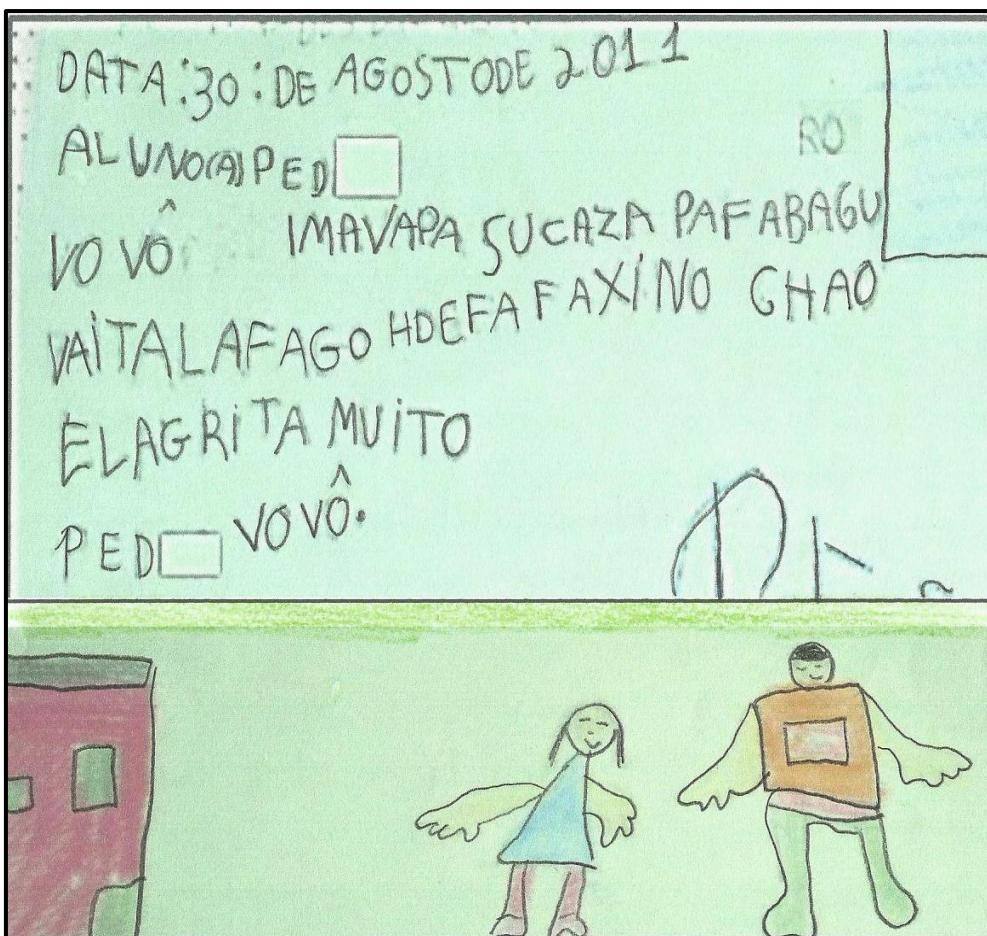 DATA:30:DE AGOSTODE 2011
ALUNO(A)PED
RO
VOVÔ IMAVAPA SUCAZA PAFABAGU
VAITALAFAGO HDEFAFAXINO CHAO
ELAGRITA MUITO
PED VOVÔ.